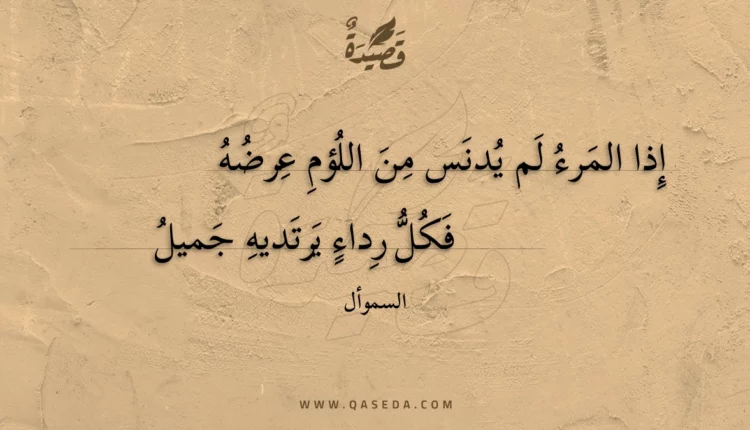 قَصِيدَةٌ
إِذا المَرءُ لَم يُدنَس مِنَ اللُؤمِ عِرضُهُ
فَكُلُّ رِداءٍ يَرتَديهِ جَميلُ
السموأل
WWW.QASEDA.COM